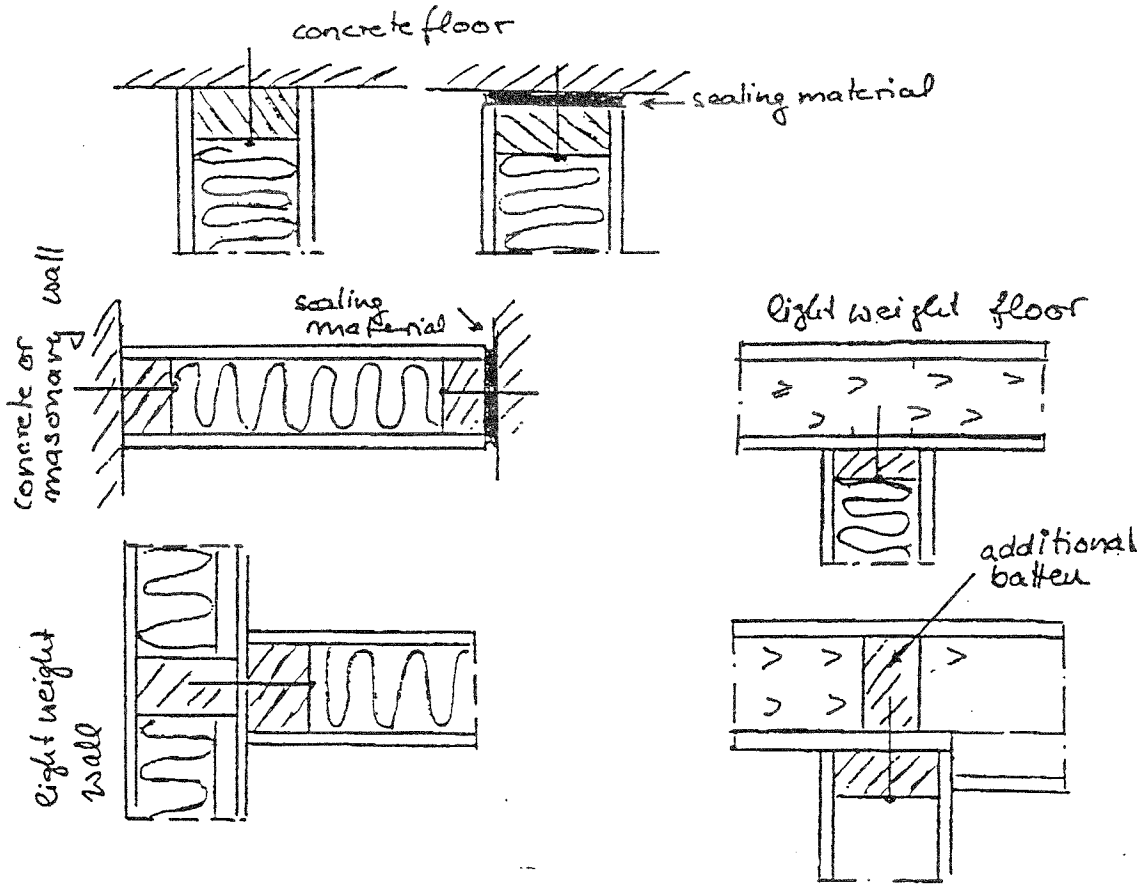 concrete floor
sealing material
concrete or
masonary wall
sealing
material
light weight floor
additional
batten
light weight
wall